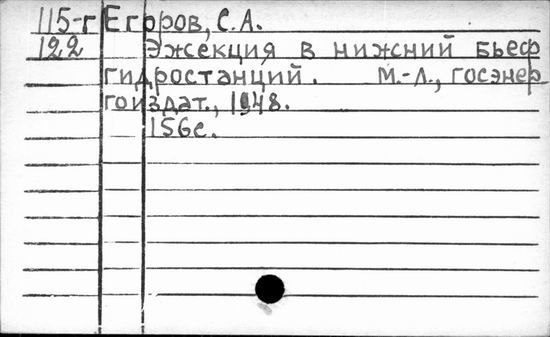 115-г Егоров, С.А.
122 Эжекция в нижний бьеф
гидростанций. М.-Л., госэнер
гоиздат., 1948.
156с.